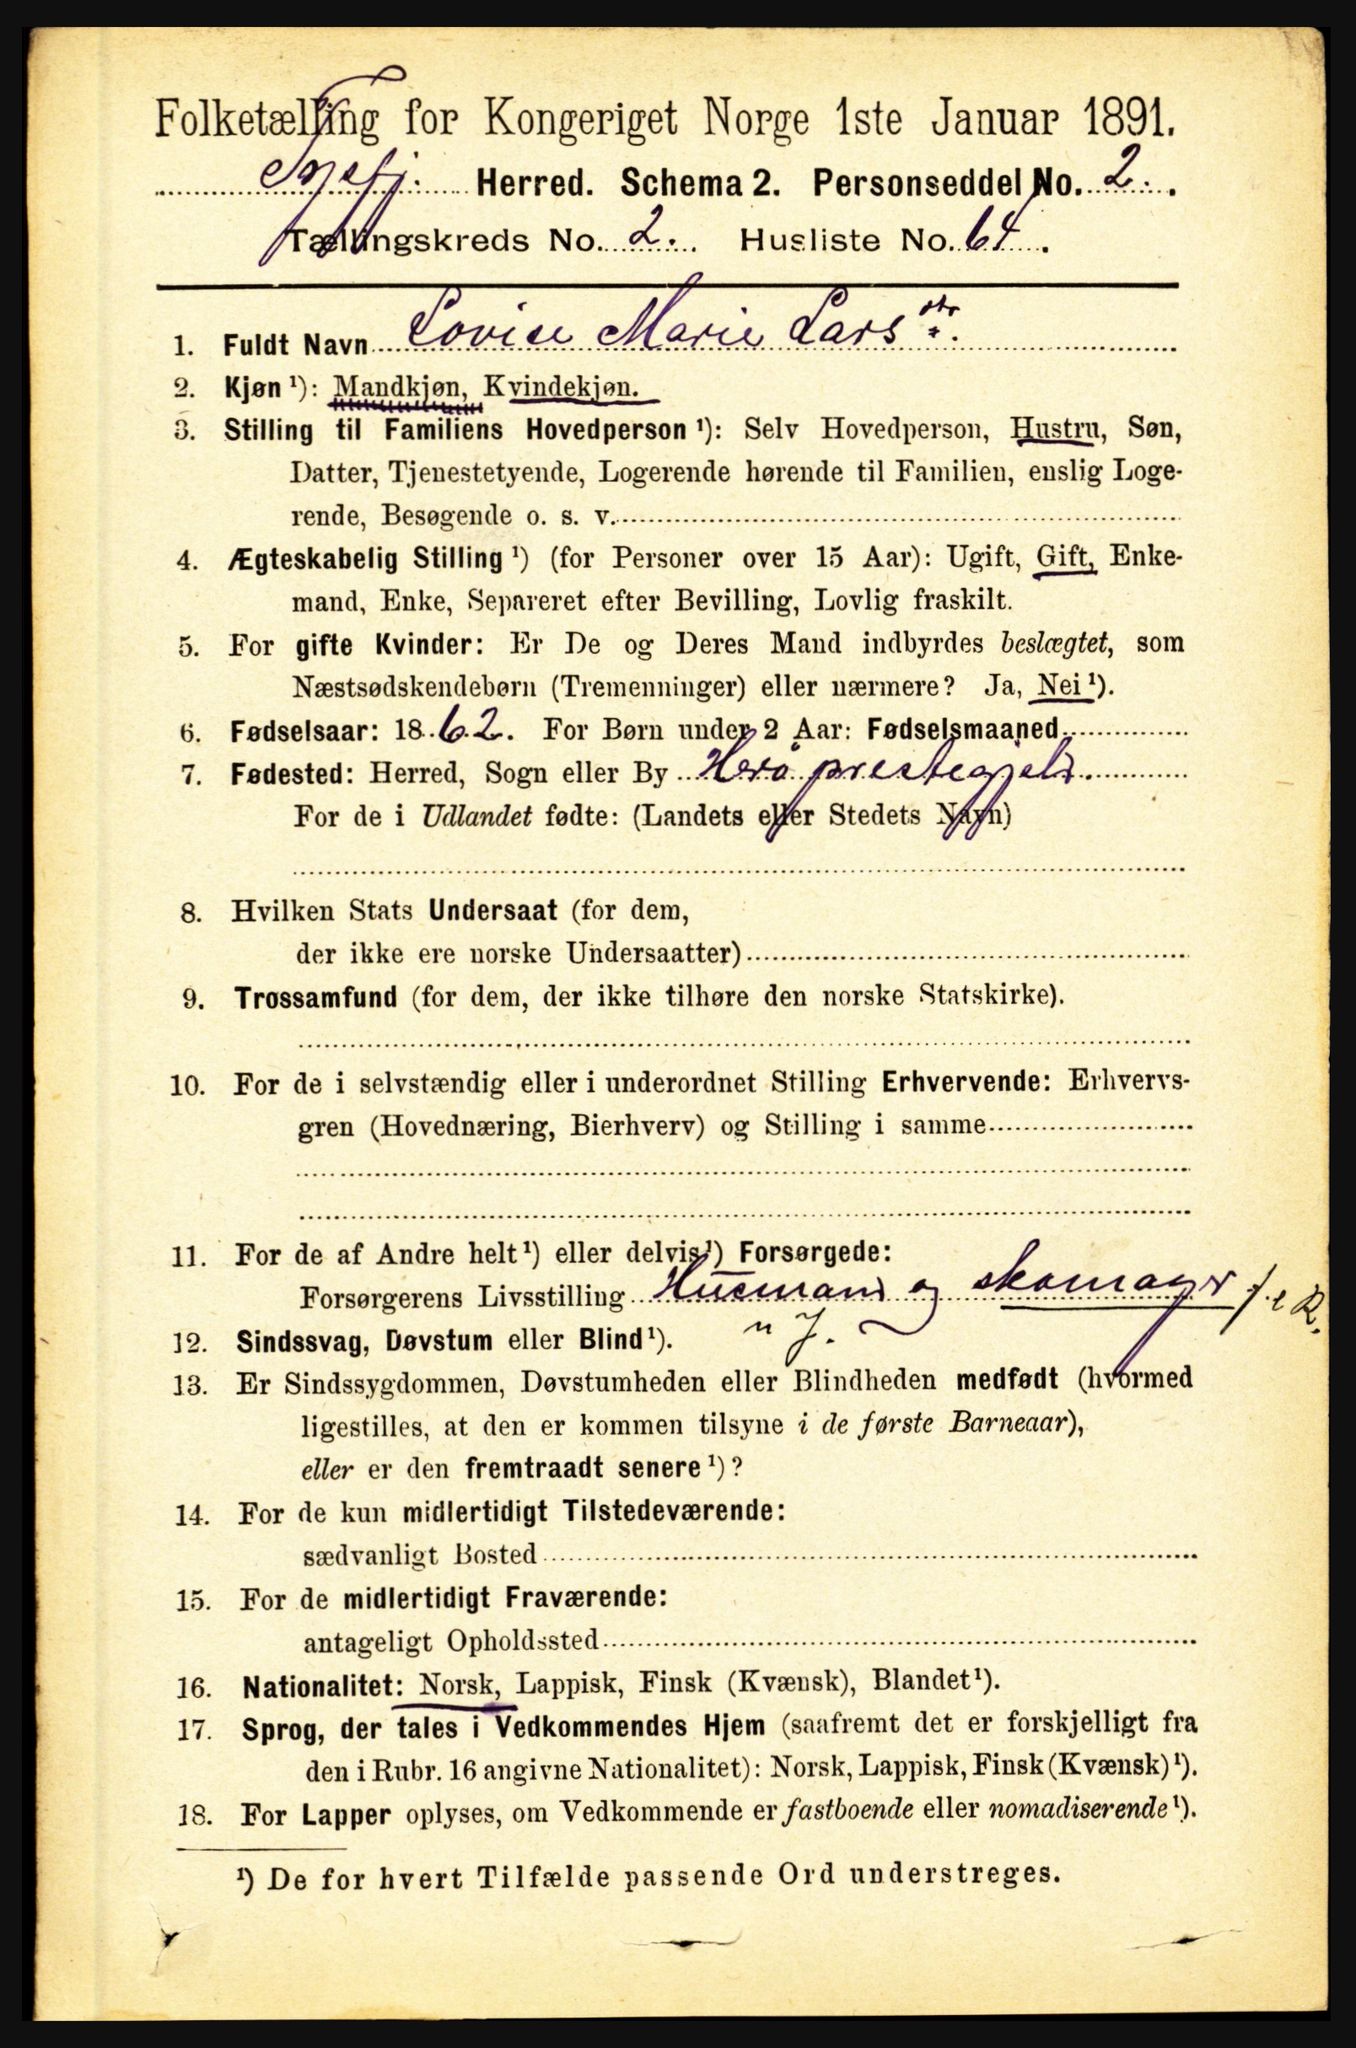 Folketælling for Kongeriget Norge 1ste Januar 1891.
Herred. Schema 2. Personseddel No. 2.
Tællingskreds No. 2. Husliste No. 64.
1. Fuldt Navn Lovise Marie Larsdtr.
2. Kjøn ¹): Mandkjøn, Kvindekjøn.
3. Stilling til Familiens Hovedperson ¹): Selv Hovedperson, Hustru, Søn,
Datter, Tjenestetyende, Logerende hørende til Familien, enslig Loge-
rende, Besøgende o. s. v.
4. Ægteskabelig Stilling ¹) (for Personer over 15 Aar): Ugift, Gift, Enke-
mand, Enke, Separeret efter Bevilling, Lovlig fraskilt.
5. For gifte Kvinder: Er De og Deres Mand indbyrdes beslægtet, som
Næstsødskendebørn (Tremenninger) eller nærmere? Ja, Nei ¹).
6. Fødselsaar: 1862. For Børn under 2 Aar: Fødselsmaaned
7. Fødested: Herred, Sogn eller By Herø prestegjeld.
For de i Udlandet fødte: (Landets eller Stedets Navn)
8. Hvilken Stats Undersaat (for dem,
der ikke ere norske Undersaatter)
9. Trossamfund (for dem, der ikke tilhøre den norske Statskirke).
10. For de i selvstændig eller i underordnet Stilling Erhvervende: Erhvervs-
gren (Hovednæring, Bierhverv) og Stilling i samme
11. For de af Andre helt ¹) eller delvis ¹) Forsørgede:
Forsørgerens Livsstilling Husmand og skomager f. e R.
" J.
12. Sindssvag, Døvstum eller Blind ¹).
13. Er Sindssygdommen, Døvstumheden eller Blindheden medfødt (hvormed
ligestilles, at den er kommen tilsyne i de første Barneaar),
eller er den fremtraadt senere ¹)?
14. For de kun midlertidigt Tilstedeværende:
sædvanligt Bosted
15. For de midlertidigt Fraværende:
antageligt Opholdssted
16. Nationalitet: Norsk, Lappisk, Finsk (Kvænsk), Blandet ¹).
17. Sprog, der tales i Vedkommendes Hjem (saafremt det er forskjelligt fra
den i Rubr. 16 angivne Nationalitet): Norsk, Lappisk, Finsk (Kvænsk) ¹).
18. For Lapper oplyses, om Vedkommende er fastboende eller nomadiserende ¹).
¹) De for hvert Tilfælde passende Ord understreges.